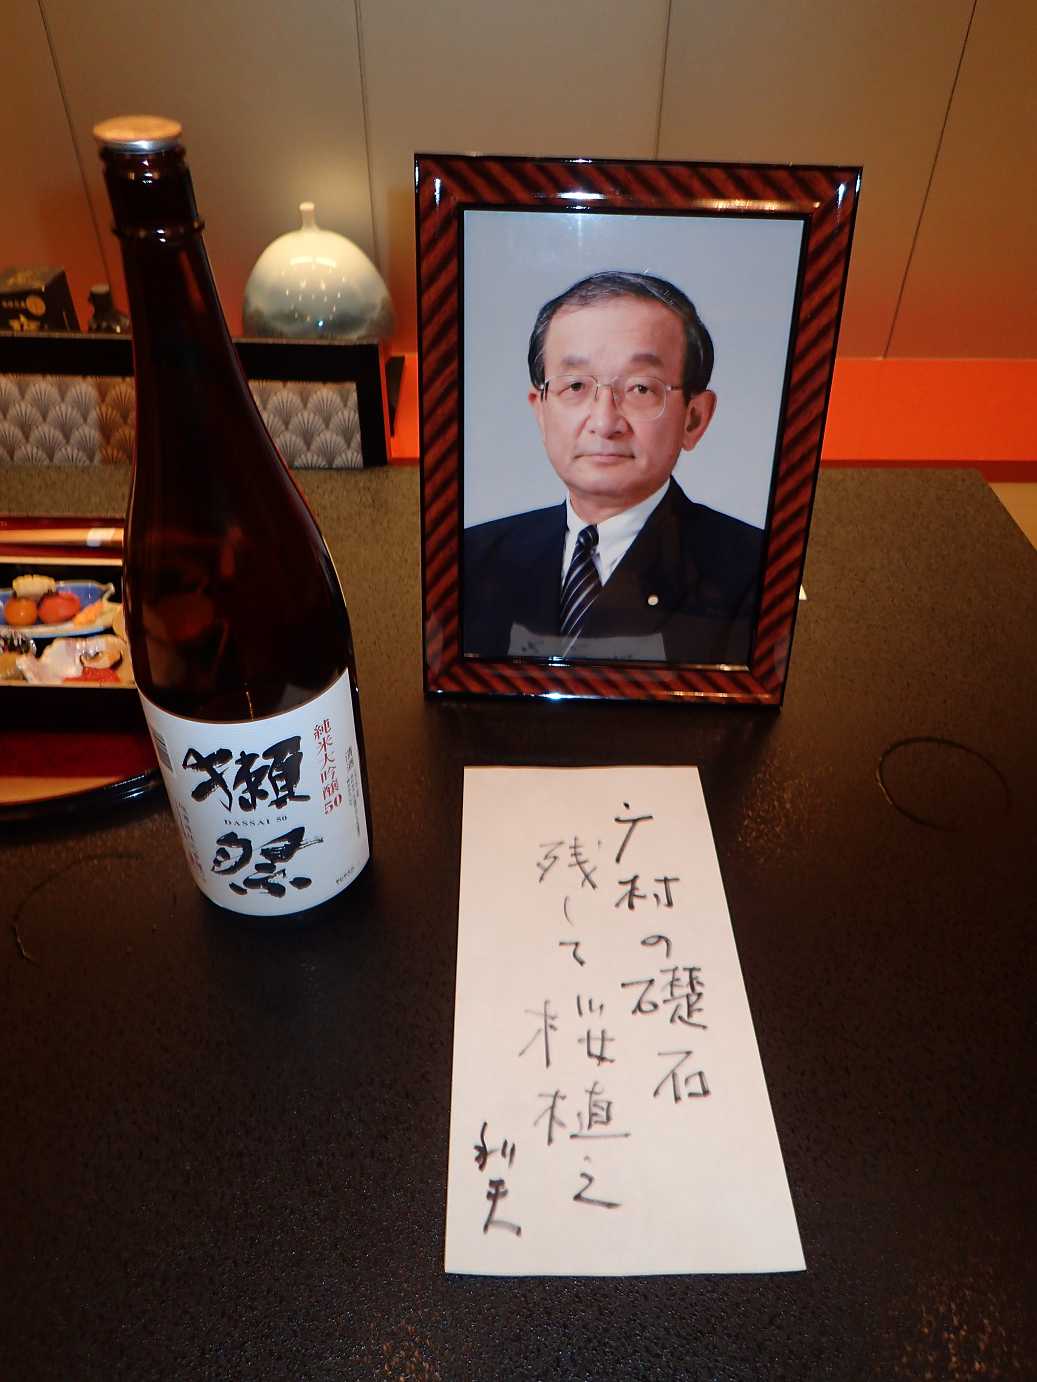 純米大吟醸50
清酒
獺祭
DASSAI 50
广村の礎石
残して桜植え
利夫